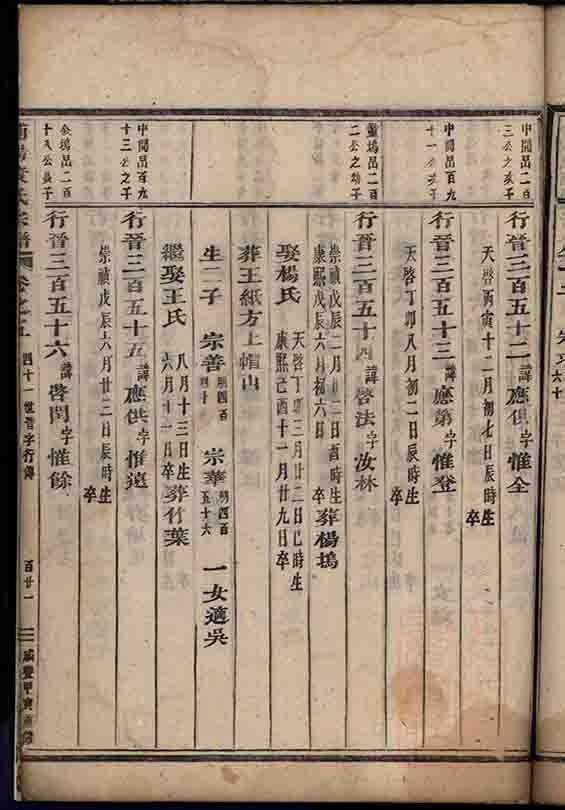 中間呂二百
三公之長子
行晉三百五十二諱應俱字惟全
天啓丙寅十二月初七日辰時生
卒
中間呂百九
十一公次子
行晉三百五十三諱應第字惟登
天啓丁卯八月初二日辰時生
卒
塢呂二百
二公之幼子
行晉三百五十四諱啓法字汝林
崇禎戊辰二月廿二日酉時生
康熙戊辰六月初六日卒
葬楊塢
娶楊氏
天啓丁卯三月廿二日巳時生
康熙己酉十一月廿九日卒
葬王紙方上帽山
生二子 宗善明四百四十 宗華明四百五十六 一女適吳
繼娶王氏
八月十三日生
六月十一日卒
葬竹葉
中間呂百九
十三公之子
行晉三百五十五諱應供字惟遠
崇禎戊辰六月廿二日辰時生
卒
塢呂二百
十八公長子
行晉三百五十六諱啓問字惟餘
氏宗譜 卷之五 四十一世晉字行傳 百廿一 咸豐甲寅